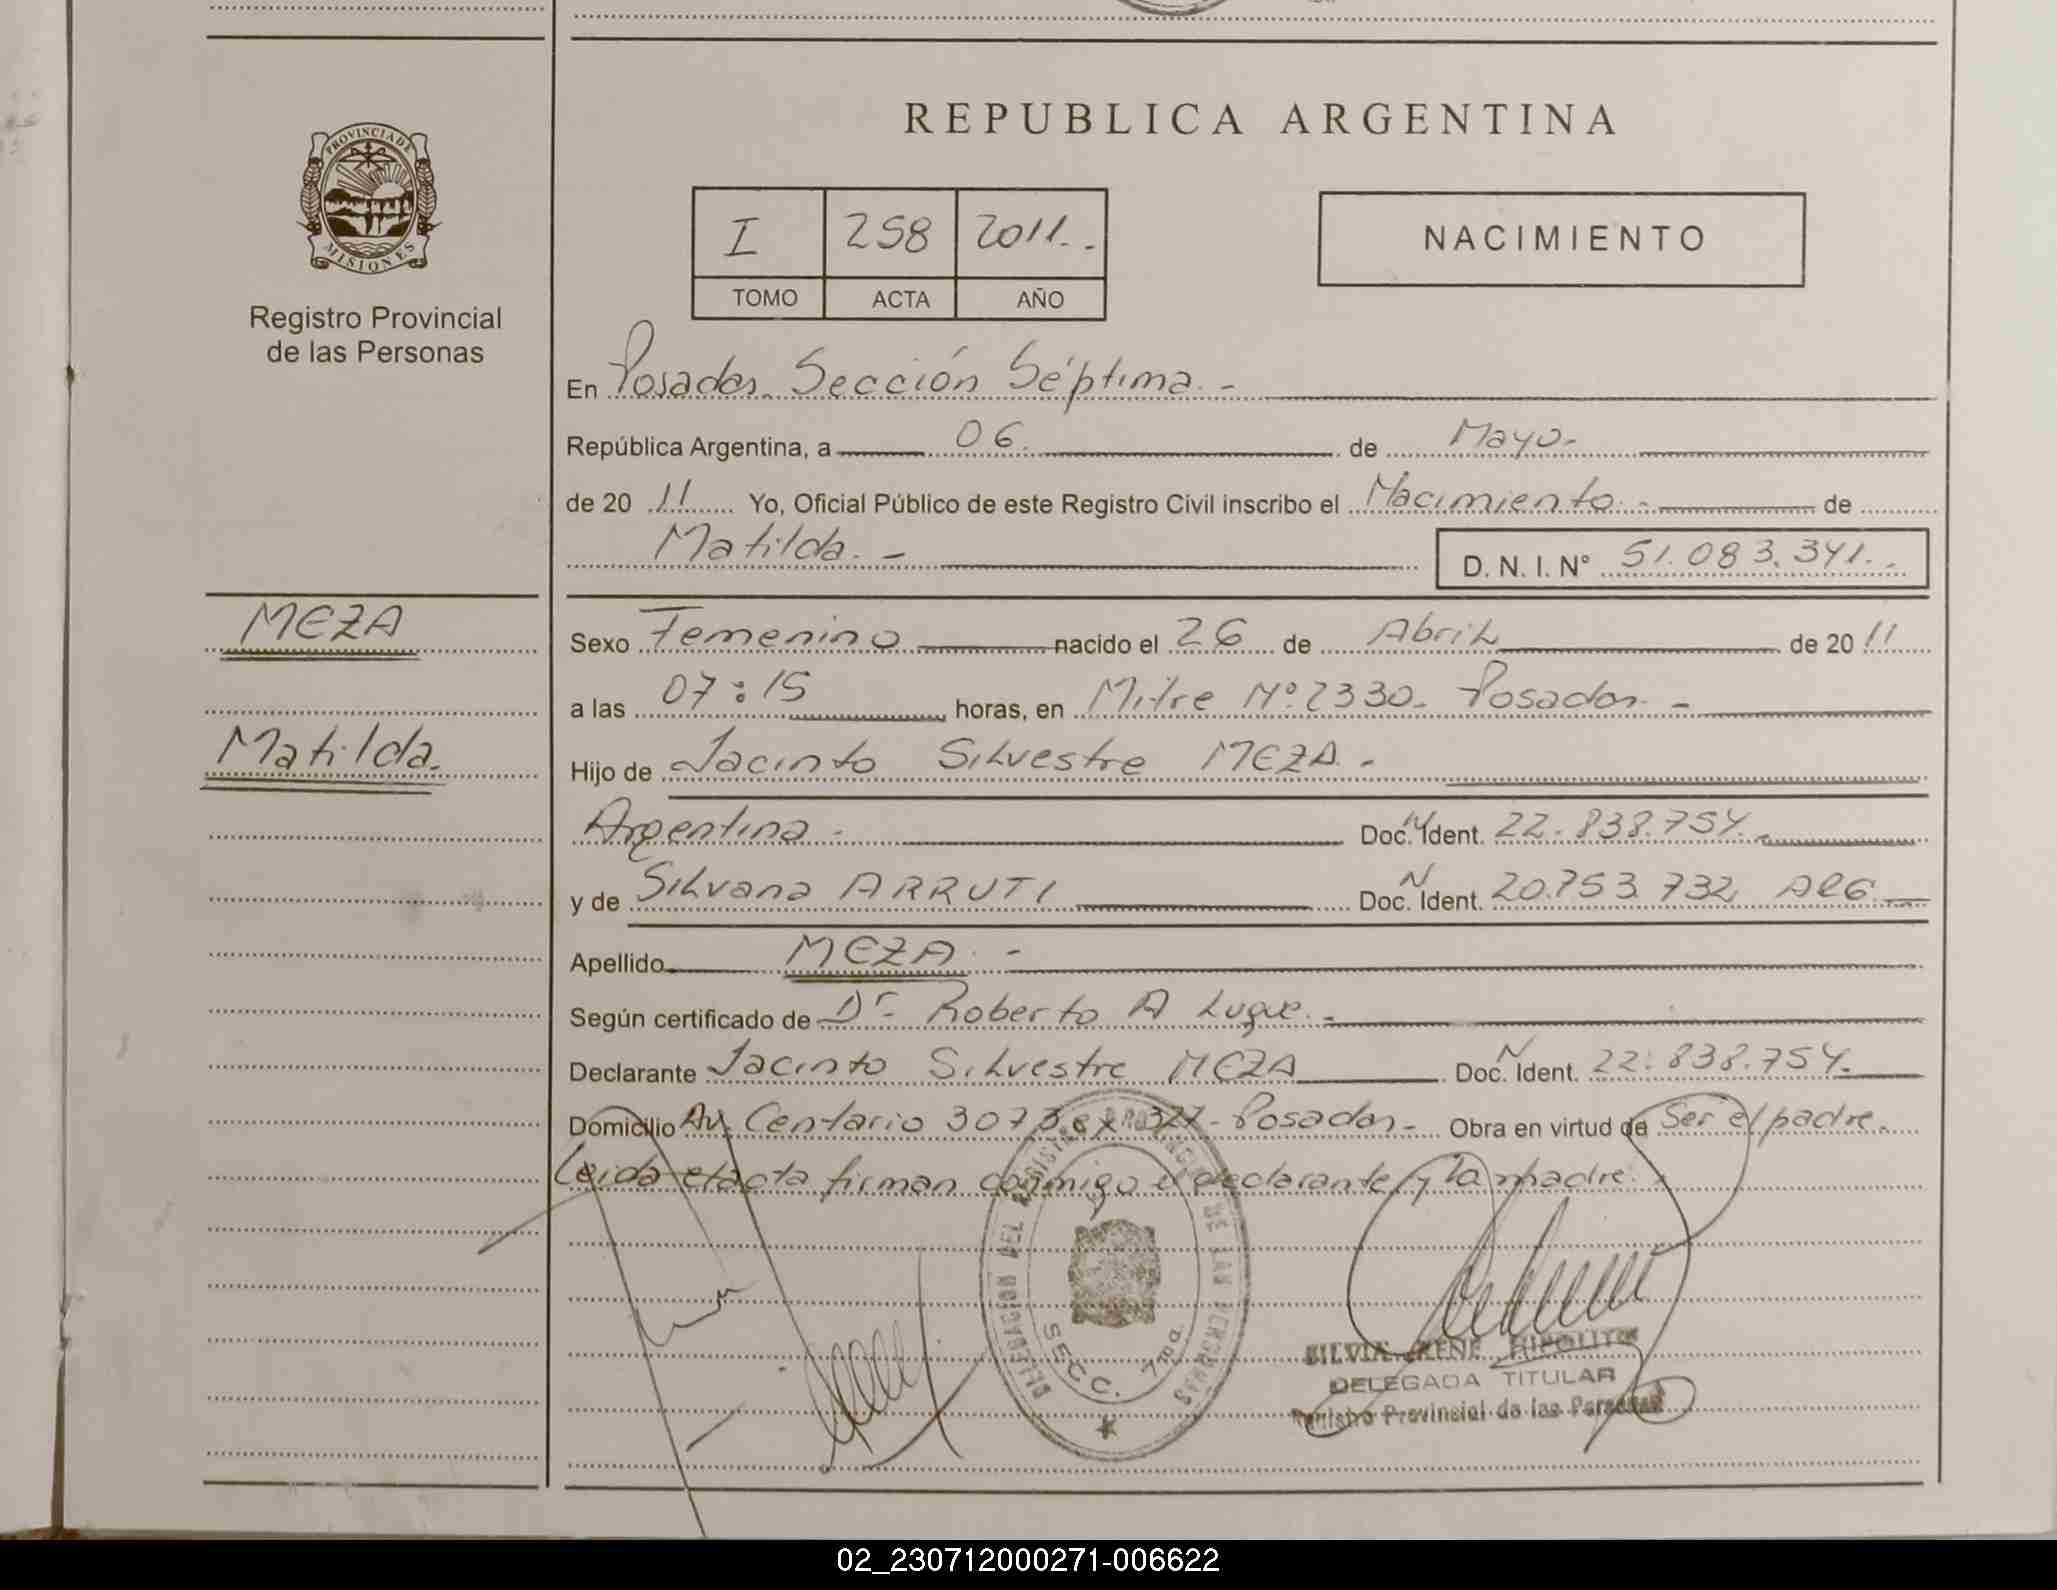 REPUBLICA ARGENTINA
PROVINCIA DE
MISIONES
Registro Provincial
de las Personas
I 258 2011.-
TOMO ACTA AÑO
NACIMIENTO
En Posadas Sección Séptima.-
República Argentina, a 06 de Mayo-
de 20 11 Yo, Oficial Público de este Registro Civil inscribo el Nacimiento.- de
Matilda.- D. N. I. Nº 51.083.341.-
MEZA
Sexo Femenino nacido el 26 de Abril de 20 11
a las 07:15 horas, en Mitre Nº 2330- Posadas.-
Matilda.
Hijo de Jacinto Silvestre MEZA.-
Argentina.- Doc. N Ident. 22.838.754.-
y de Silvana ARRUTI Doc. N Ident. 20.753.732 ARG.
Apellido MEZA.-
Según certificado de Dr. Roberto A Luque.-
Declarante Jacinto Silvestre MEZA Doc. N Ident. 22.838.754.
Domicilio Av. Centario 3073 ex 327- Posadas- Obra en virtud de Ser el padre.
Leida el acta firman conmigo el declarante y la madre.
DELEGACION DEL REGISTRO PROVINCIAL DE LAS PERSONAS
SECC. 7ma.
SILVIA IRENE HIPOLITO
DELEGADA TITULAR
Registro Provincial de las Personas
02_230712000271-006622